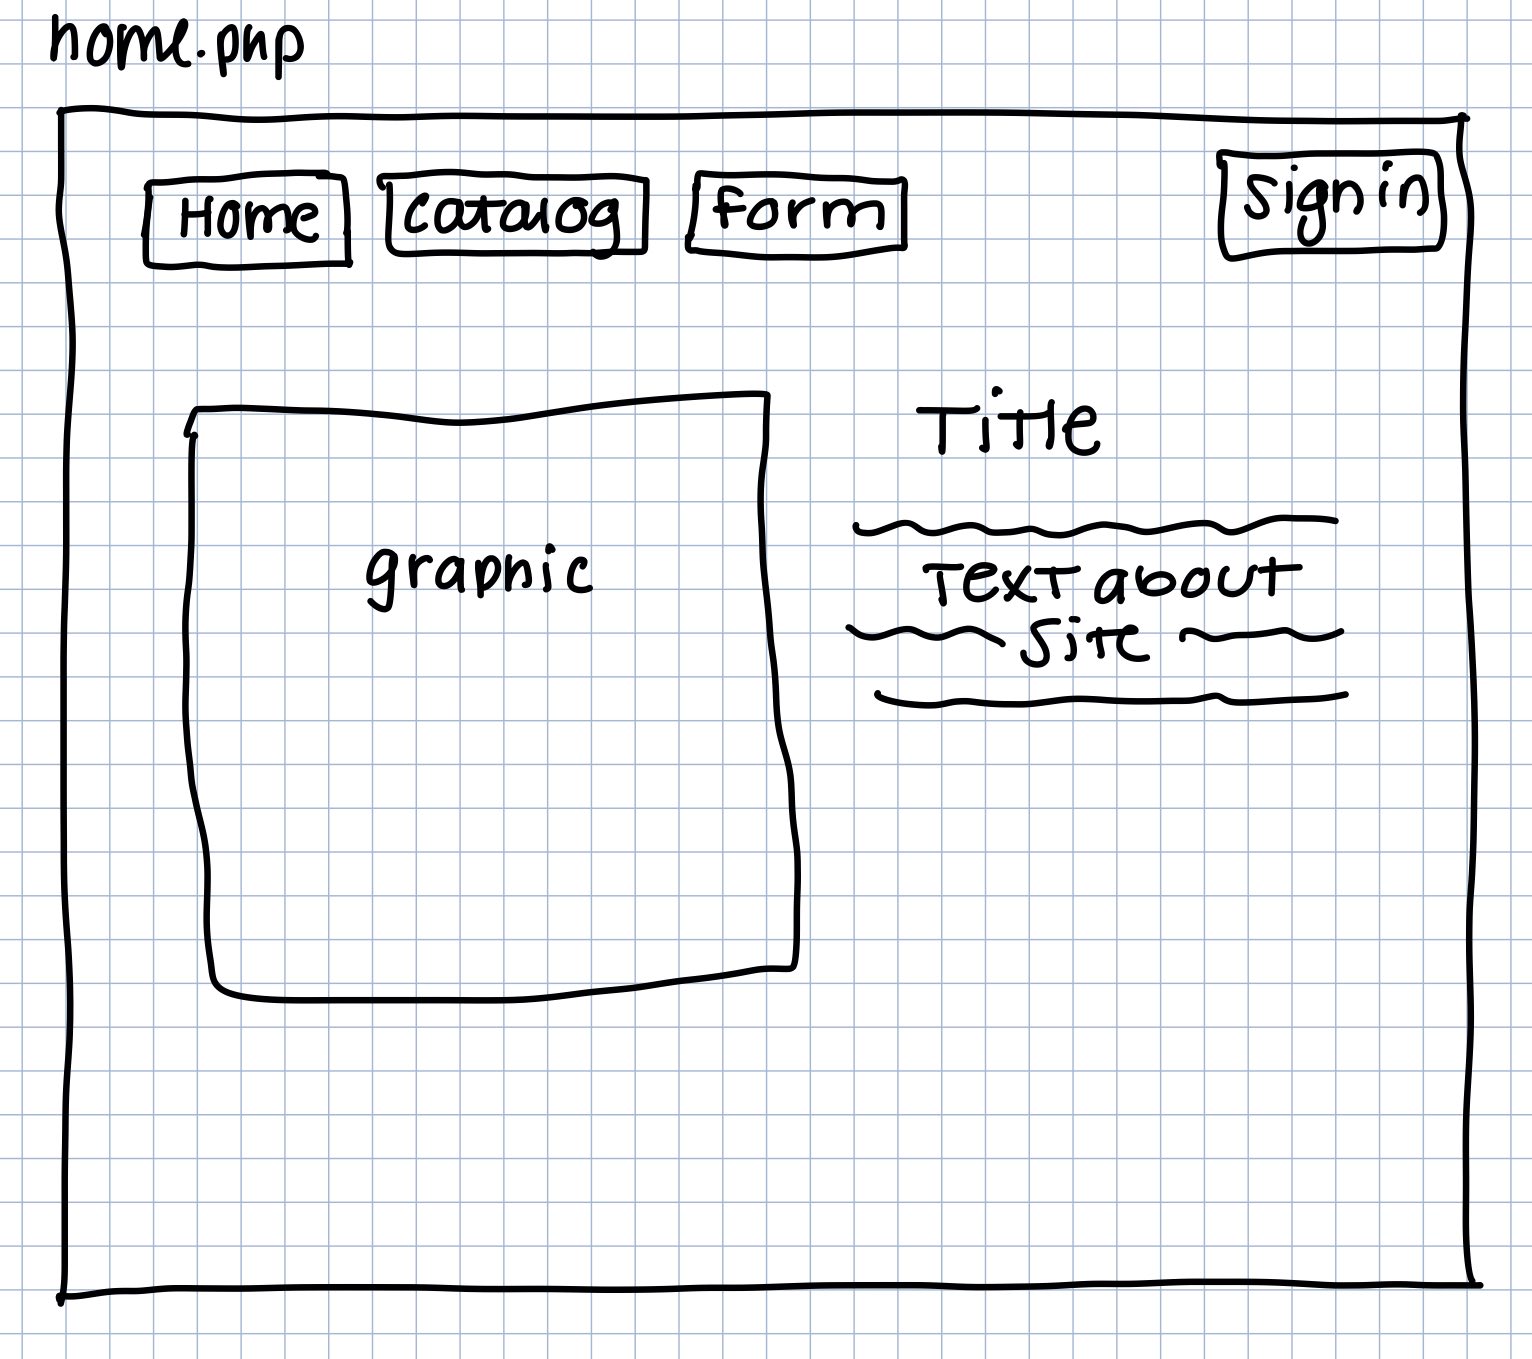 home.php
Home catalog form sign in
Title
graphic
Text about
site